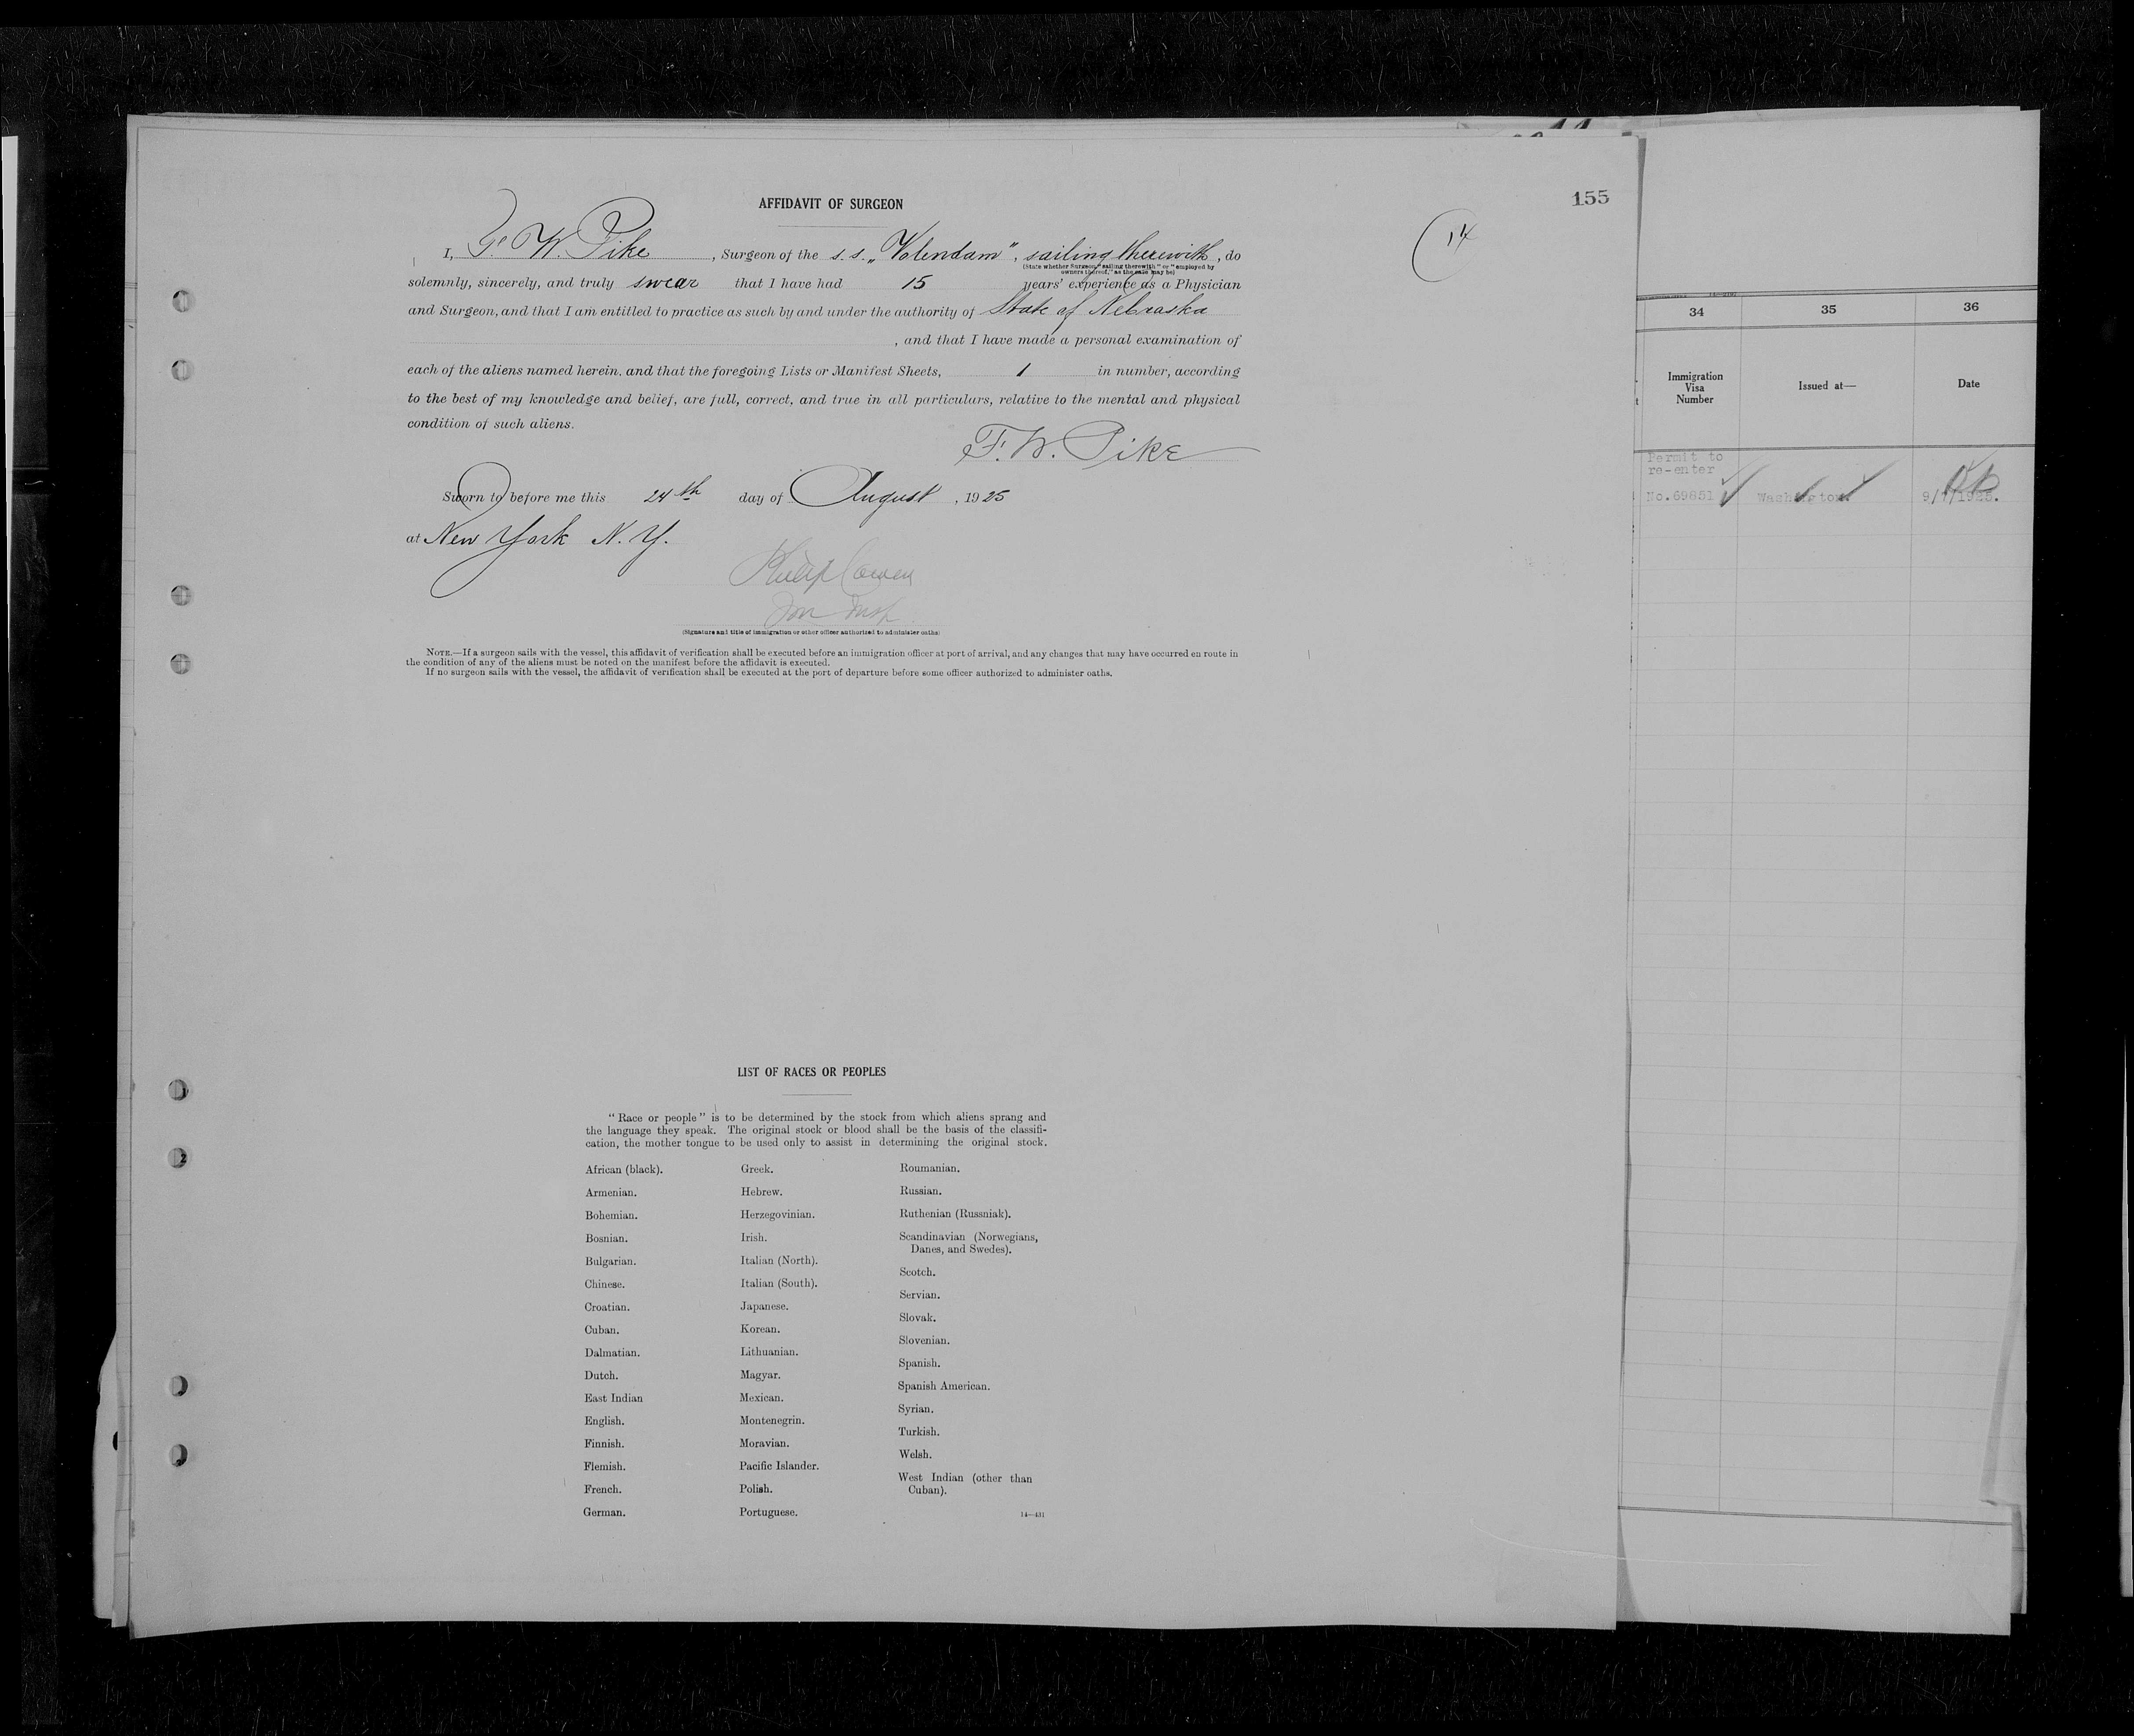 155
AFFIDAVIT OF SURGEON
14
I, F. W. Pike, Surgeon of the s.s. „Volendam", sailing therewith, do
(State whether Surgeon "sailing therewith" or "employed by
owners thereof," as the case may be)
solemnly, sincerely, and truly swear that I have had 15 years' experience as a Physician
and Surgeon, and that I am entitled to practice as such by and under the authority of State of Nebraska
, and that I have made a personal examination of
each of the aliens named herein, and that the foregoing Lists or Manifest Sheets, 1 in number, according
to the best of my knowledge and belief, are full, correct, and true in all particulars, relative to the mental and physical
condition of such aliens.
F. W. Pike
Sworn to before me this 24th day of August, 1925
at New York N.Y.
Philip Cowen
(Signature and title of immigration or other officer authorized to administer oaths)
NOTE.—If a surgeon sails with the vessel, this affidavit of verification shall be executed before an immigration officer at port of arrival, and any changes that may have occurred en route in
the condition of any of the aliens must be noted on the manifest before the affidavit is executed.
If no surgeon sails with the vessel, the affidavit of verification shall be executed at the port of departure before some officer authorized to administer oaths.
LIST OF RACES OR PEOPLES
"Race or people" is to be determined by the stock from which aliens sprang and
the language they speak. The original stock or blood shall be the basis of the classifi-
cation, the mother tongue to be used only to assist in determining the original stock.
African (black).
Armenian.
Bohemian.
Bosnian.
Bulgarian.
Chinese.
Croatian.
Cuban.
Dalmatian.
Dutch.
East Indian
English.
Finnish.
Flemish.
French.
German.
Greek.
Hebrew.
Herzegovinian.
Irish.
Italian (North).
Italian (South).
Japanese.
Korean.
Lithuanian.
Magyar.
Mexican.
Montenegrin.
Moravian.
Pacific Islander.
Polish.
Portuguese.
Roumanian.
Russian.
Ruthenian (Russniak).
Scandinavian (Norwegians,
Danes, and Swedes).
Scotch.
Servian.
Slovak.
Slovenian.
Spanish.
Spanish American.
Syrian.
Turkish.
Welsh.
West Indian (other than
Cuban).
14—431
34 35 36
Immigration
Visa
Number
Issued at—
Date
Permit to
re-enter
No.69851 Washington